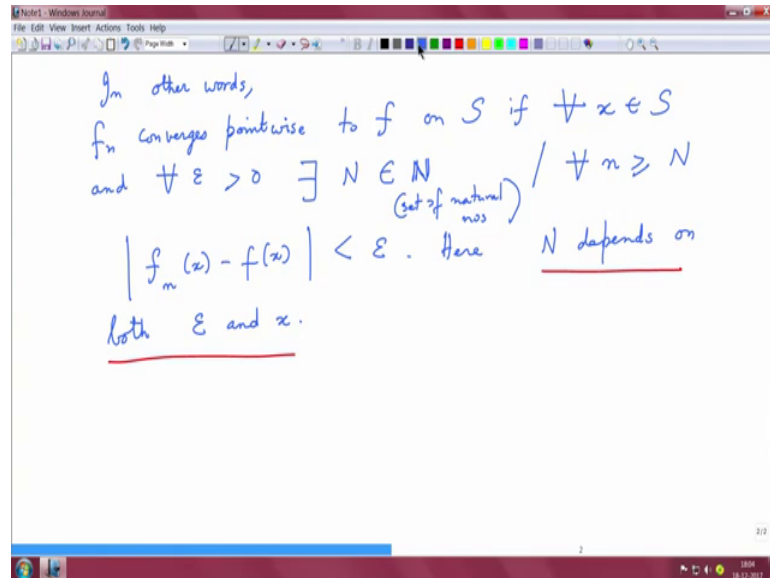 Note1 - Windows Journal
File Edit View Insert Actions Tools Help
Page Width
In other words,
fₙ converges pointwise to f on S if ∀ x ∈ S
and ∀ ε > 0 ∃ N ∈ ℕ / ∀ n ⩾ N
(set of natural
nos)
| fₙ(x) - f(x) | < ε . Here N depends on
both ε and x.
2/2
2
18:04
18-12-2017